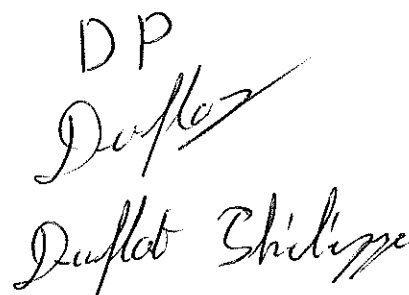 DP
Duflot
Duflot Philippe